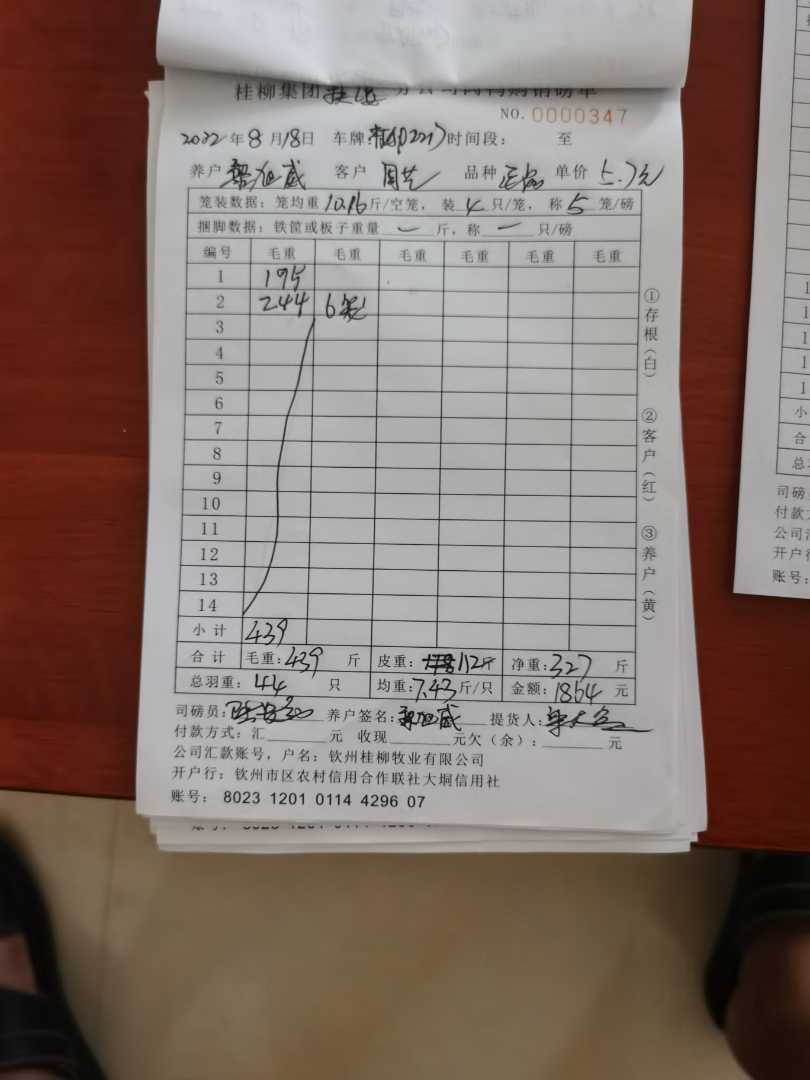 桂柳集团 分公司肉鸭购销磅单
NO. 0000347
2022年8月18日 车牌: 时间段: 至
养户 客户 周艺 品种 正品 单价 5.7元
笼装数据: 笼均重10.16斤/空笼, 装4只/笼, 称5笼/磅
捆脚数据: 铁筐或板子重量 一 斤, 称 一 只/磅
编号 毛重 毛重 毛重 毛重 毛重 毛重
1 195
2 244 6笼
3
4
5
6
7
8
9
10
11
12
13
14
小计 439
合计 毛重:439 斤 皮重: 112斤 净重:327 斤
总羽重: 44 只 均重:7.43斤/只 金额:1864 元
司磅员: 养户签名: 提货人:
付款方式: 汇 元 收现 元欠(余): 元
公司汇款账号, 户名: 钦州桂柳牧业有限公司
开户行: 钦州市区农村信用合作联社大垌信用社
账号: 8023 1201 0114 4296 07
①存根(白)
②客户(红)
③养户(黄)
小
合
总
司磅
付款
公司汇
开户行
账号: